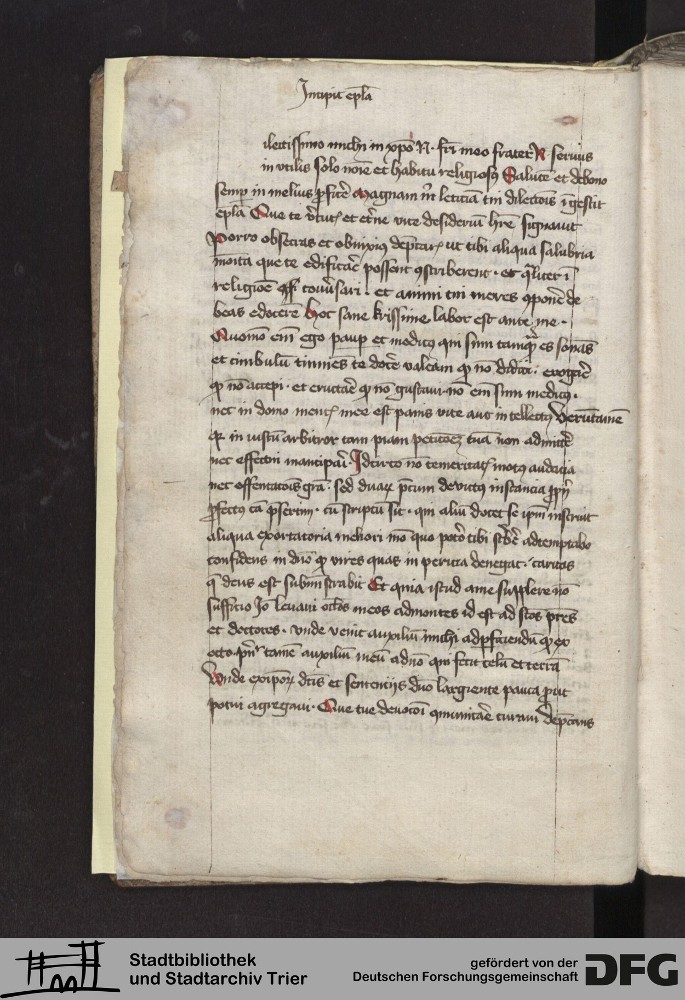 Incipit epl̄a
ilectissimo michi in xp̄o N. fr̄i meo frater N. seruus
in vtilis solo noīe et habitu religiosꝯ Salutē et de bono
semp in melius ꝓficē Magnam īn leticia tui dilectōis īgessit
epl̄a Que te et et̄ne vite desideriū hr̄e signauit
Porro obsecras et obnixiꝯ dep̄caris ut tibi aliqua salubria
monita que te edificāe possent ꝯscriberent. et qȧliter ī
religiōe ꝯuersari. et animi tui mores ꝯponē de
beas edocerē Hoc sane krissime labor est ante me.
Quomō em̄ ego paup et modicꝯ qui sum tamꝙ̄ es sonās
et cimbulū tinniēs te docē valeam ꝙ nō didici. erogāe
ꝙ nō accepi. et eructāe ꝙ nō gustaui nō em̄ sum medicꝯ.
nec in domo mea est panis vite aut intellectꝯ Verūtamē
qꝫ in iustū arbitror tam piam petitōeꝫ tuā non admittē
nec effectui mancipāi. Idcirco nō temeritatis motꝯ audacia
nec ostentatōis grā. sed duaꝝ p̄cum deuictus instancia
ꝓfectꝯ cā p̄sertim. cū scriptū sit. qui aliū docet se ip̄m instruit
aliqua exortatoria meliori mō quo potō tibi sc̄bē adtemptabo
confidens in dn̄o ꝙ vires quas inpericia denegat. caritas
q̄ deus est subministrabit Et quia istud a me supplere nō
sufficio Iō leuaui oc̄los meos ad montes id est ad sc̄os pr̄es
et doctores. vnde veniet auxiliū michi ad ꝑficiendū ꝙ ex
opto. tamē auxiliū meū a dn̄o qui fecit celū et terrā
Vnde ex ipoꝝ dc̄is et sentencijs dn̄o largiente pauca ꝓut
potui agregaui. Que tue deuotōi ꝯmunicāe curaui dep̄cans
Stadtbibliothek
und Stadtarchiv Trier
gefördert von der
Deutschen Forschungsgemeinschaft
DFG